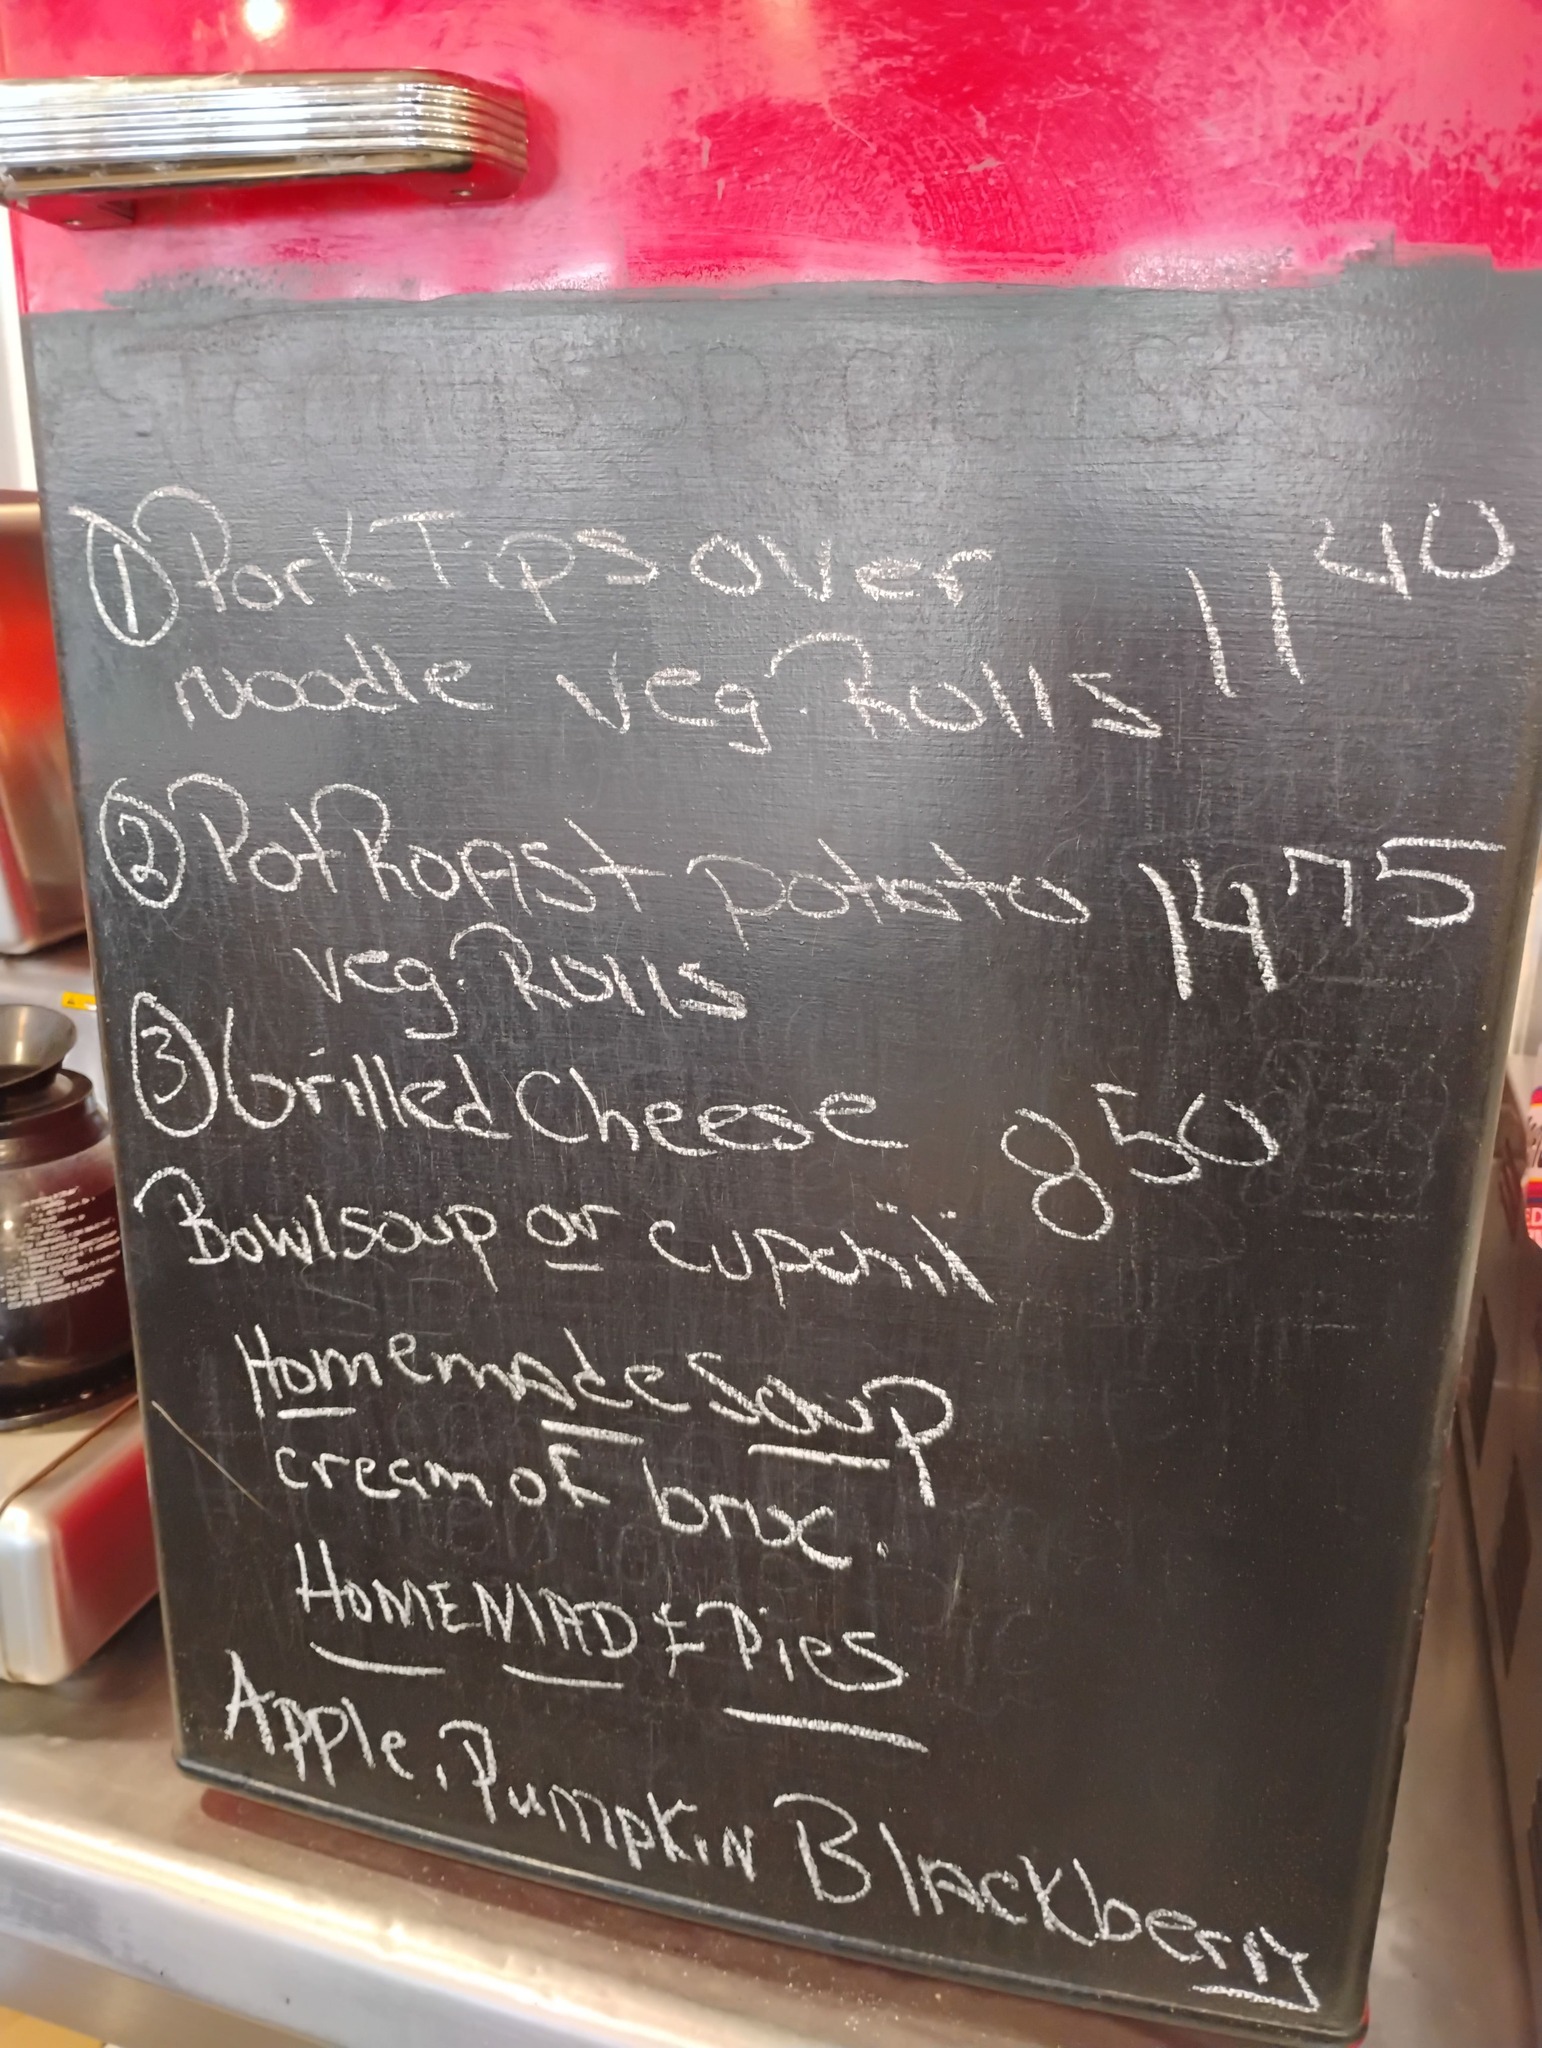 Today's Specials
① Pork Tips over 11 40
noodle veg. Rolls
② Pot Roast potato 14 75
veg. Rolls
③ Grilled Cheese 8 50
Bowl soup or cup chili
Homemade soup
cream of broc.
HOMEMADE Pies
Apple, Pumpkin Blackberry